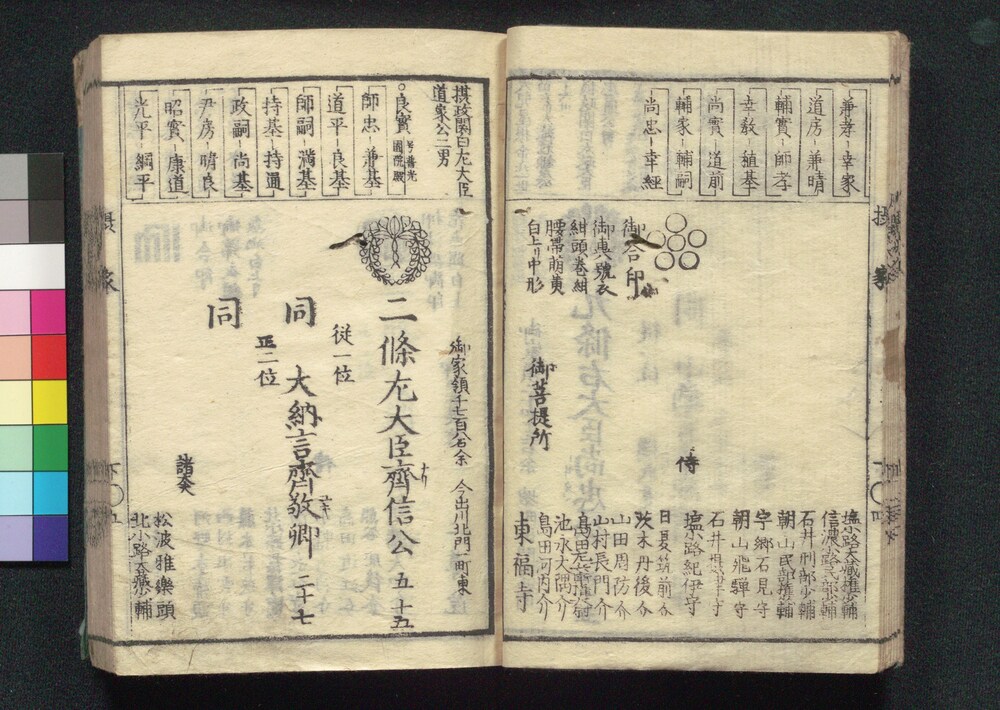 兼孝 幸家
道房 兼晴
輔實 師孝
幸教 稙基
尚實 道前
輔家 輔嗣
尚忠 幸経
御合印
御輿號衣
紺頭巻紺
腰帯萌黄
白上り中形
御菩提所
東福寺
侍
塩小路大蔵権少輔
信濃小路民部少輔
石井刑部少輔
朝山民部権少輔
宇郷石見守
朝山飛騨守
塩小路紀伊守
日夏筑前介
茨木丹後介
山田周防介
山村長門介
池永大隅介
島田河内介
摂家
摂政関白左大臣
道家公二男
良實 号普光園院殿
師忠 兼基
道平 良基
師嗣 満基
持基 持通
政嗣 尚基
尹房 晴良
昭實 康道
光平 綱平
御家領千七百八石余 今出川北門前町東
二條左大臣齊信公 五十五
従一位
同 大納言齊敬卿 二十七
正二位
同
諸大夫
松波雅樂頭
北小路大蔵大輔
摂家